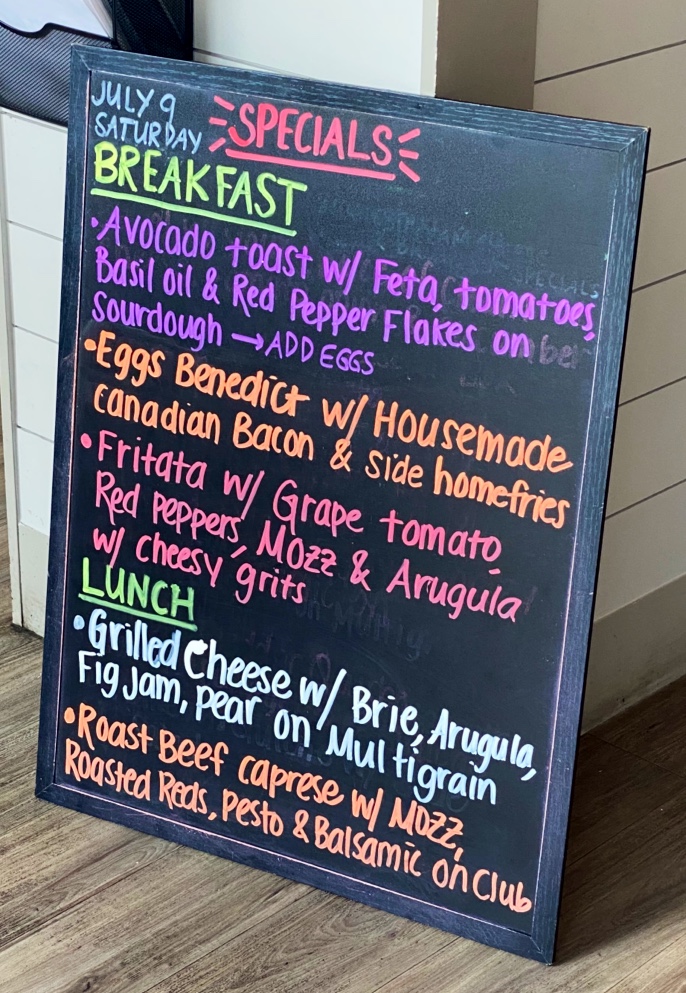 JULY 9
SATURDAY
SPECIALS
BREAKFAST
• Avocado toast w/ Feta, tomatoes,
Basil oil & Red Pepper Flakes on
sourdough → ADD EGGS
• Eggs Benedict w/ Housemade
canadian Bacon & side homefries
• Fritata w/ Grape tomato,
Red peppers, MOzz & Arugula
w/ cheesy grits
LUNCH
• Grilled Cheese w/ Brie, Arugula,
Fig Jam, pear on Multigrain
• Roast Beef caprese w/ MOZZ,
Roasted Reds, Pesto & Balsamic on Club